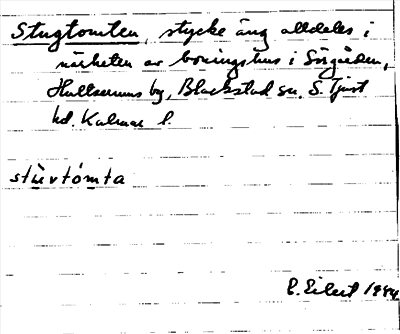 Stugtomten, stycke äng alldeles i
närheten av boningshus i Sörgården,
Hultserums by, Blackstad sn. S. Tjust
hd. Kalmar l.
stüvtomta
C. Eilert 1944